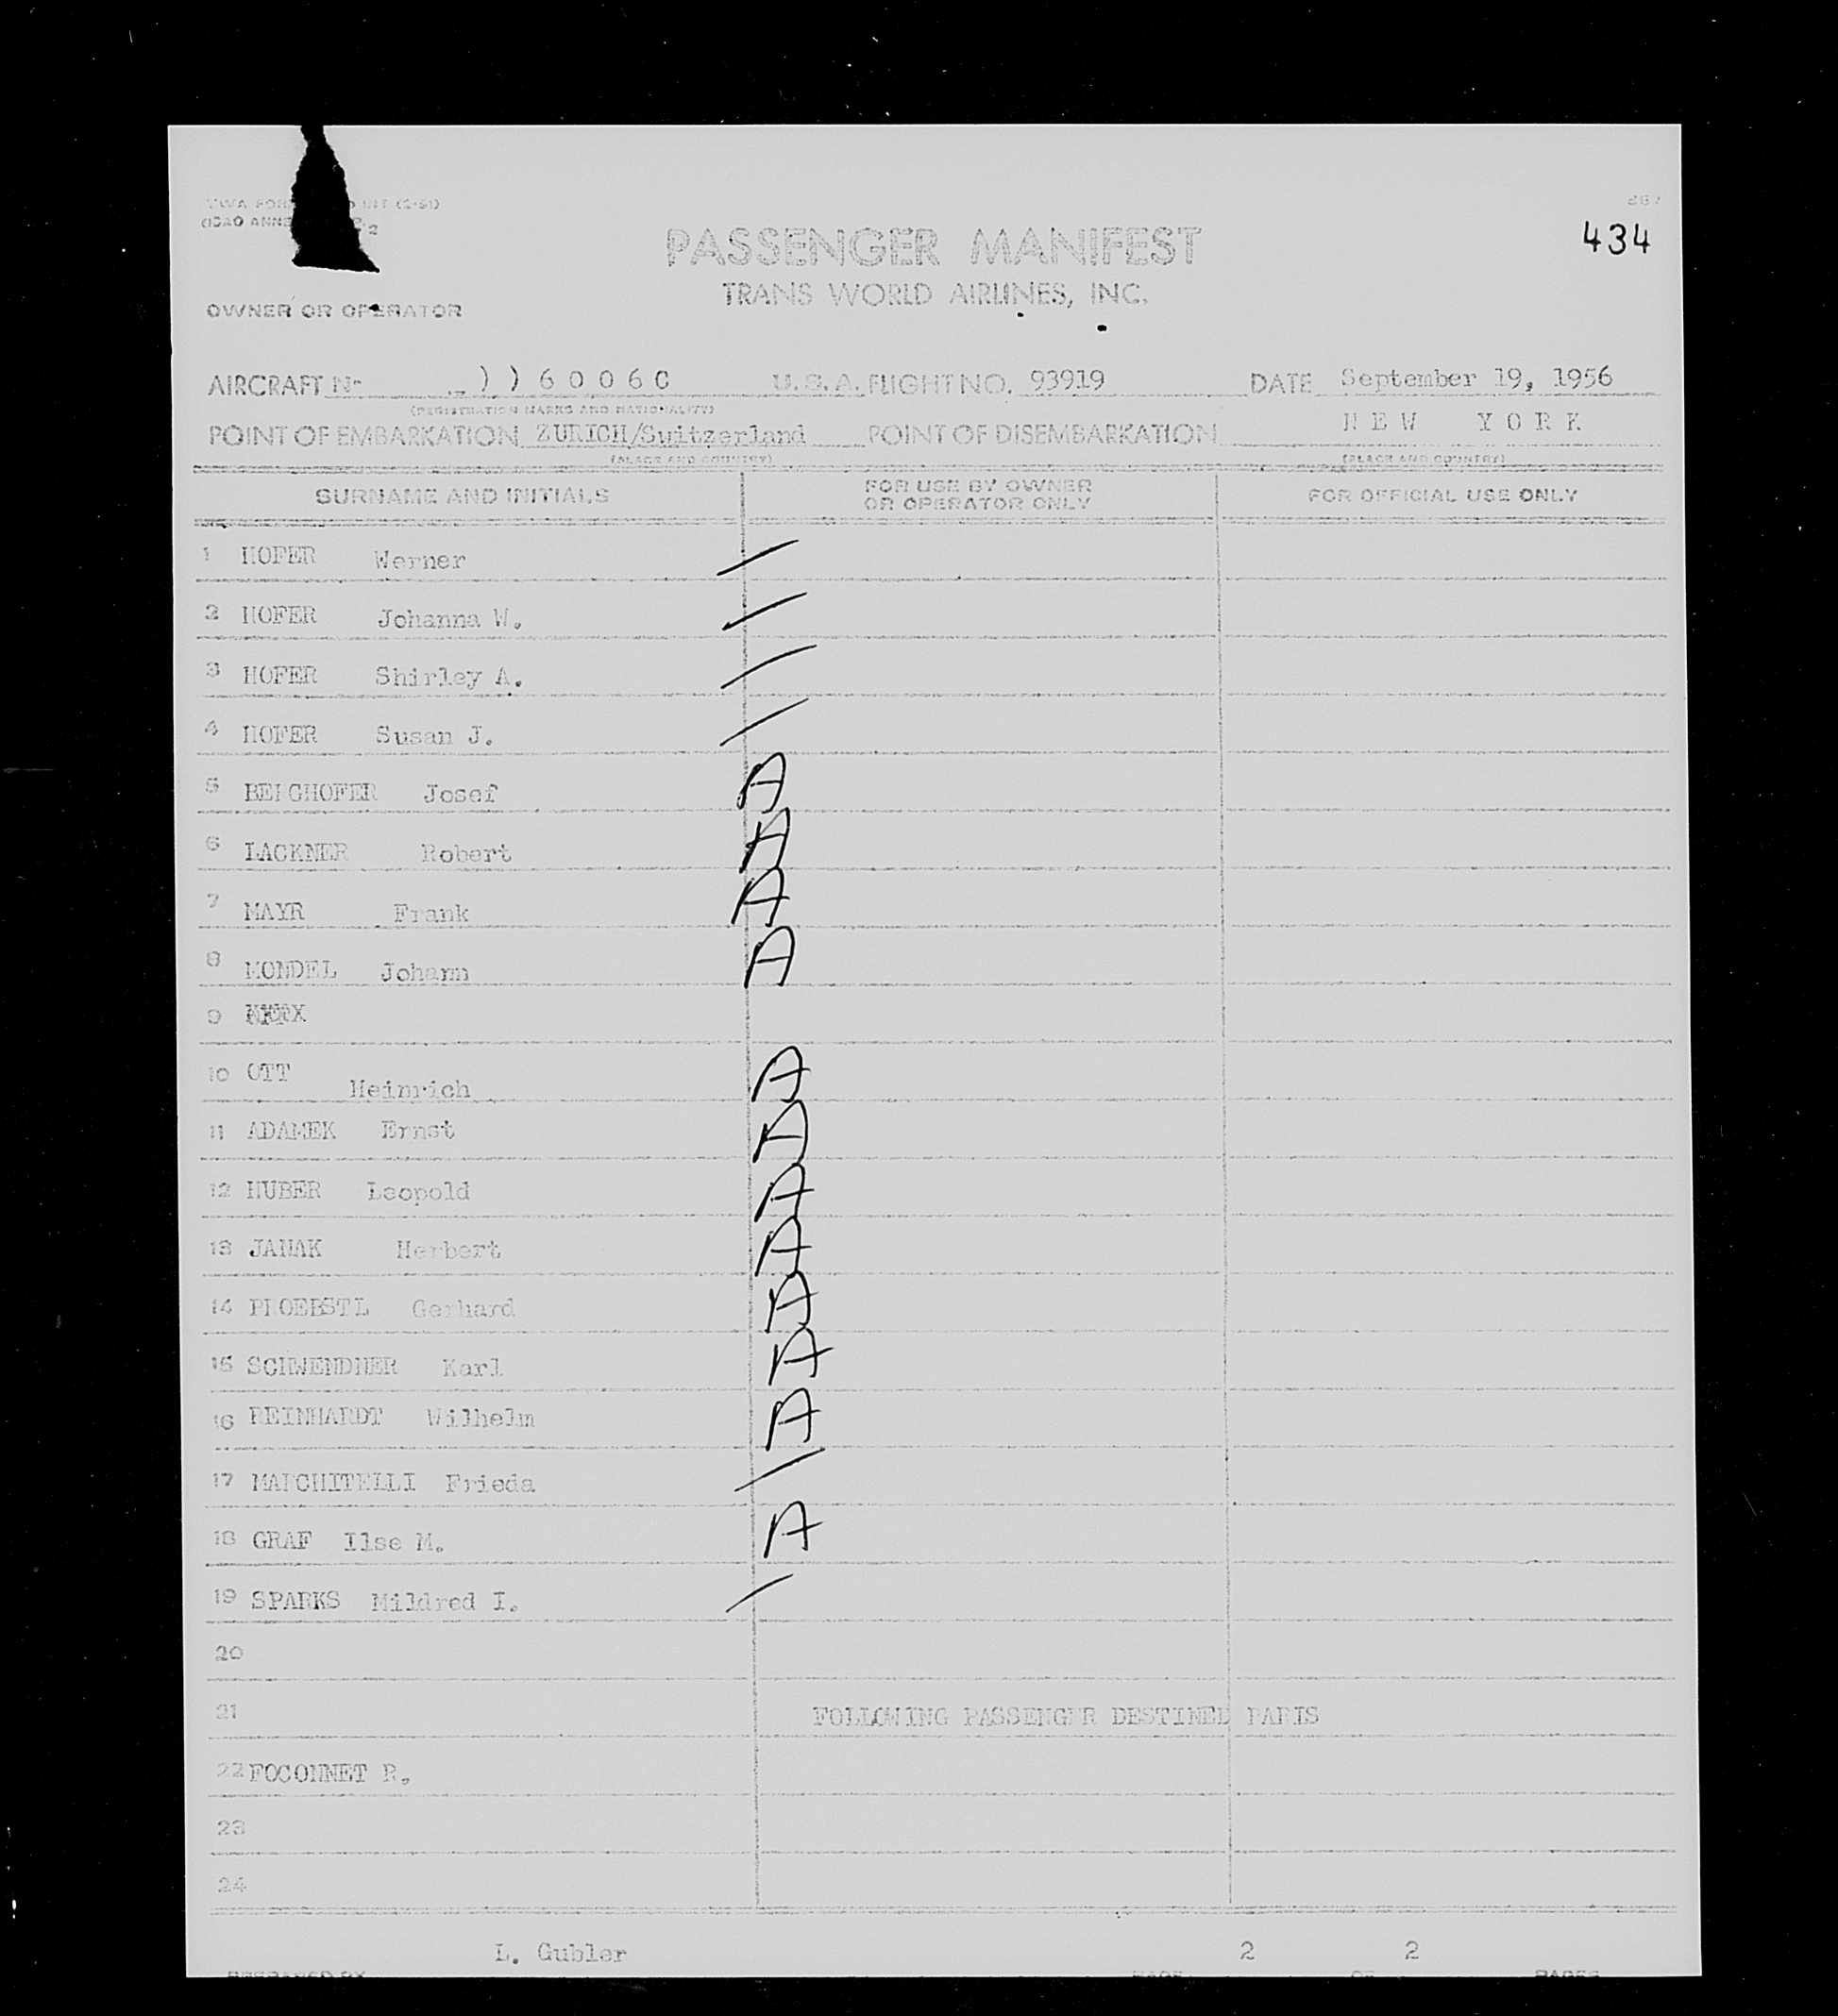 434
PASSENGER MANIFEST
TRANS WORLD AIRLINES, INC.
OWNER OR OPERATOR
AIRCRAFT No ))6006C U.S.A. FLIGHT NO. 93919 DATE September 19, 1956
(REGISTRATION MARKS AND NATIONALITY)
POINT OF EMBARKATION ZURICH/Switzerland POINT OF DISEMBARKATION NEW YORK
(PLACE AND COUNTRY) (PLACE AND COUNTRY)
SURNAME AND INITIALS FOR USE BY OWNER OR OPERATOR ONLY FOR OFFICIAL USE ONLY
1 HOFER Werner
2 HOFER Johanna W.
3 HOFER Shirley A.
4 HOFER Susan J.
5 BERGHOFER Josef A
6 LACKNER Robert A
7 MAYR Frank A
8 MONDEL Johann A
9
10 OTT Heinrich A
11 ADAMEK Ernst A
12 HUBER Leopold A
13 JANAK Herbert A
14 PROEBSTL Gerhard A
15 SCHWENDNER Karl A
16 REINHARDT Wilhelm A
17 MARCHITELLI Frieda
18 GRAF Ilse M. A
19 SPARKS Mildred I.
20
21 FOLLOWING PASSENGER DESTINED PARIS
22 FOCONNET R.
23
24
L. Gubler 2 2